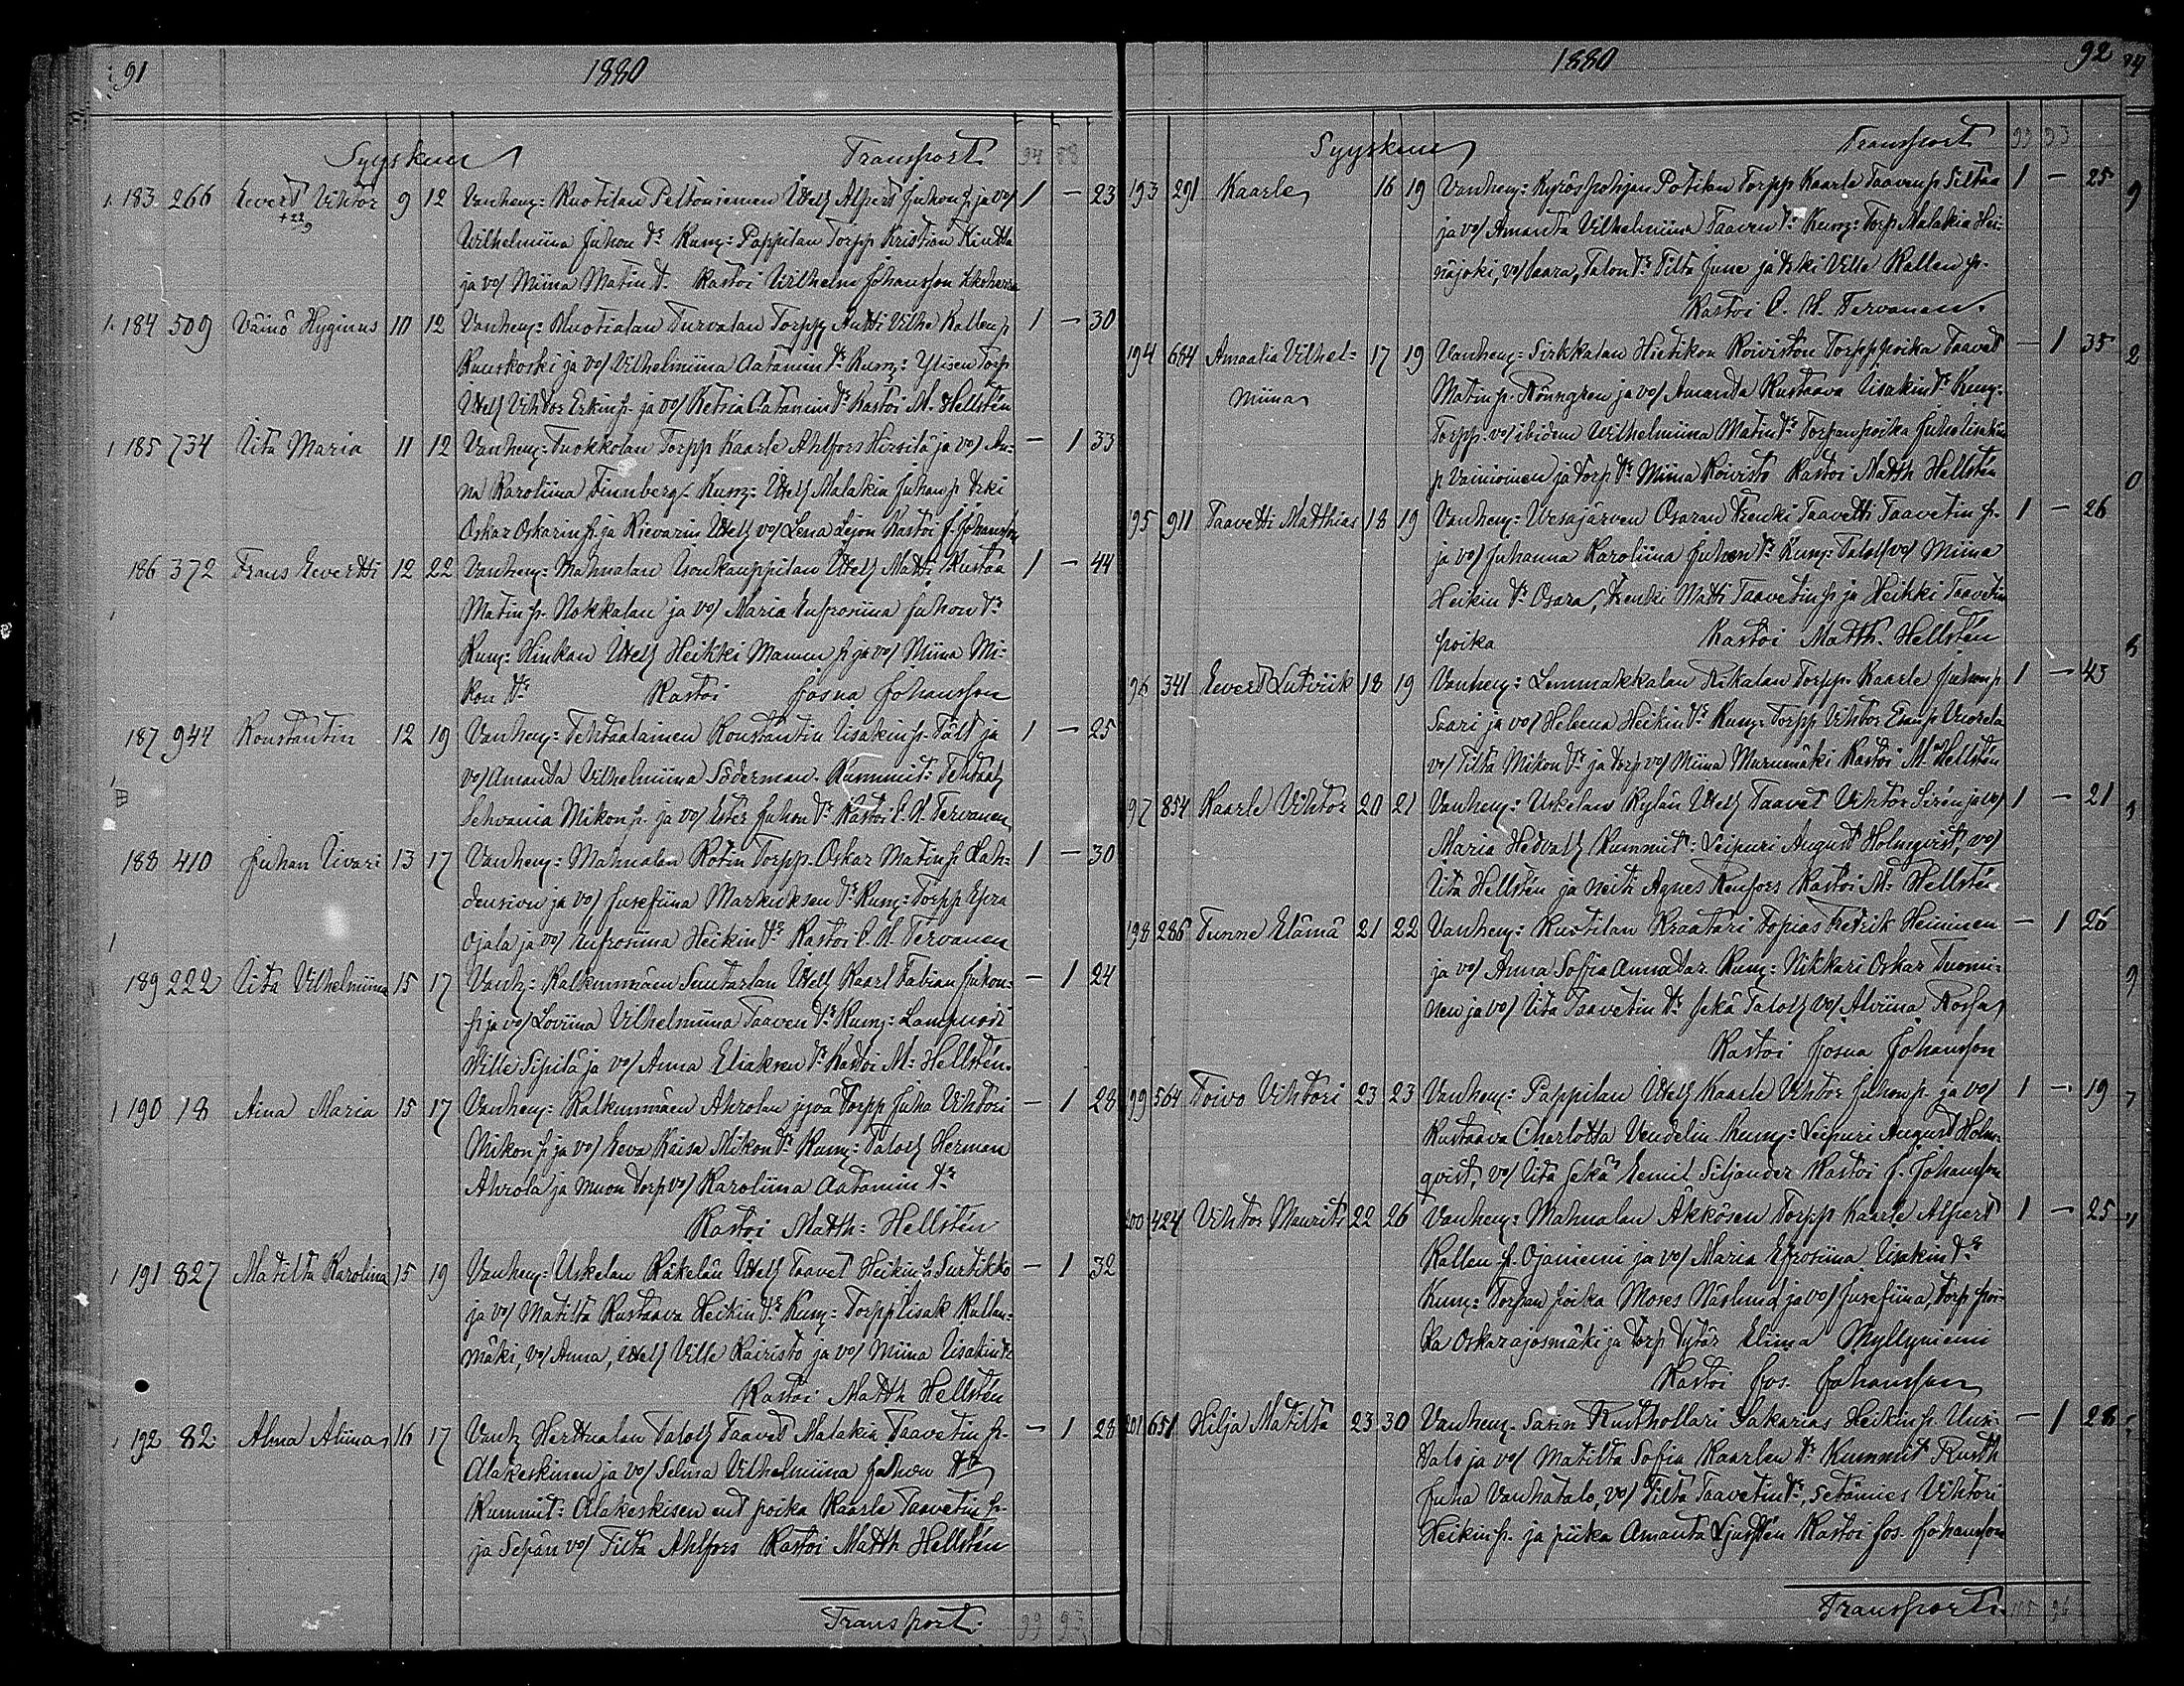 91 1880
Syyskuu Transport 94 88
1. 183 266 Evert Vihtor 9 12 Vanhem: Kuotilan Peltoniemen Itself Alfert Juhon p ja vo/ 1 — 23
+ 22/9 Wilhelmiina Juhon tr Kum: Pappilan Torpp Kristian Kintta
ja vo/ Miina Matin t. Kastoi Wilhelm Johansson kkoherra
1. 184 509 Väinö Hyginus 10 12 Vanhem: Turvalan Torpp Antti Vilhe Kallen p 1 — 30
Kauskoski ja vo/ Vilhelmiina Aatamin tr Kum: Ylisen Torp
Itself Vihtor Erkin p. ja vo/ Ketria Aatamin tr Kastoi M. Hellstén
1 185 734 Iita Maria 11 12 Vanhem: Tuokkolan Torpp Kaarle Ahlfors Hirsilä ja vo/ An- — 1 33
na Karoliina Finnberg. Kum: Itself Malakia Juhan p
Oskar Oskarin p. ja Kievarin Itself vo/ Lena Lejon Kastoi J. Johansson
186 372 Frans Evertti 12 22 Vanhem: Mahnalan Isonkauppilan Itself Matti Kustaa 1 — 44
Matin p. Nokkalan ja vo/ Maria Eufrosiina Juhon tr
Kum: Hinkan Itself Heikki Manun p ja vo/ Miina Mi-
kon tr Kastoi Josua Johansson
187 944 Konstantin 12 19 Vanhem: Tehtaalainen Konstantin Iisakin p. Fält ja 1 — 25
vo/ Amanda Vilhelmiina Söderman. Kummit: Tehtaal
Sehvania Mikon p. ja vo/ Ester Juhon tr Kastoi C. H. Tervanen
188 410 Juhan Iivari 13 17 Vanhem: Mahnalan Kotin Torpp. Oskar Matin p Lah- 1 — 30
densivu ja vo/ Jusefiina Markuksen tr Kum: Torpp Esra
Ojala ja vo/ Eufrosiina Heikin tr Kastoi C. H. Tervanen
189 222 Iita Vilhelmiina 15 17 Vanh: Kalkunmäen Suutarlan Itself Kaarl Fabian Juhon- — 1 24
p. ja vo/ Loviina Vilhelmiina Taaven tr Kum: Lampuoti
Wille Sipilä ja vo/ Anna Eliaksen tr Kastoi M: Hellstén.
1 190 18 Aina Maria 15 17 Vanhem: Kalkunmäen Ahrolan Torpp Juha Vihtori — 1 28
Mikon p ja vo/ Eeva Kaisa Mikon tr Kum: Talol Herman
Ahrola ja muon torp vo/ Karoliina Aatamin tr
Kastoi Matth: Hellstén
1 191 827 Matilta Karolina 15 19 Vanhem: Uskelan Räkelän Itself Taavet Heikin p. Surtikko — 1 32
ja vo/ Matilta Kustaava Heikin tr Kum: Torpp Iisak Kallan-
mäki, vo/ Anna, Itself Ville Kairisto ja vo/ Miina Iisakin tr
Kastoi Matth Hellstén
1 192 82 Alma Aliina 16 17 Vanh Herttualan Talol Taavet Malakia Taavetin p. — 1 28
Alakeskinen ja vo/ Selma Vilhelmiina Juhon tr
Kummit: Alakeskisen ent poika Kaarle Taavetin p.
ja Sepän vo/ Tilta Ahlfors Kastoi Matth Hellstén
Transport. 99 93
1880 92
Syyskuu Transport 99 93
193 291 Kaarle 16 19 Vanhem: Kyröspohjan Potilan Torpp Kaarle Taaven p Siltaa 1 — 25
ja vo/ Amanta Vilhelmiina Taaven tr Kum: Torp Malakia Hei-
näjoki, vo/ Saara, Talon tr Tilta June ja Ville Kallen p.
Kastoi C. H. Tervanen.
194 684 Amaalia Vilhel- 17 19 Vanhem: Sirkkalan Hietikon Koiviston Torpp poika Taavet — 1 35
miina Matin p. Rönngren ja vo/ Amanda Kustaava Iisakin tr Kum:
Torpp. vo/ ibidem Wilhelmiina Matin tr Torpan poika Juho Iisakin
p Vainioinen ja torp tr Miina Koivisto Kastoi Matth Hellstén
195 911 Taavetti Matthias 18 19 Vanhem: Vesajärven Osaran Trenki Taavetti Taavetin p. 1 — 26
ja vo/ Juhanna Karoliina Juhon tr Kum: Talol vo/ Miina
Heikin tr Osara, Trenki Matti Taavetin p ja Heikki Taavetin
poika Kastoi Matth. Hellstén
96 341 Evert Lutviik 18 19 Vanhem: Lemmakkalan Torpp. Kaarle Juhan p 1 — 43
Saari ja vo/ Helena Heikin tr Kum: Torpp Vihtor Vuorela
vo/ Tilta Mikon tr ja torp vo/ Miina Murumäki Kastoi M: Hellstén
97 854 Kaarle Vihtor 20 21 Vanhem: Uskelan Kylän Itself Taavet Vihtor Sirén ja vo/ 1 — 21
Maria Hedvall Kummit: Leipuri August Holmqvist, vo/
Iita Hellstén ja neiti Agnes Renfors Kastoi M: Hellstén
198 286 Tunne Elämä 21 22 Vanhem: Kuotilan Kraatari Topias Fredrik Heininen — 1 26
ja vo/ Anna Sofia Annadar. Kum: Nikkari Oskar Tuomi-
nen ja vo/ Iita Taavetin tr sekä Talol vo/ Alviina Rossa
Kastoi Josua Johansson
199 564 Toivo Vihtori 23 23 Vanhem: Pappilan Itself Kaarle Vihtor Juhon p. ja vo/ 1 — 19
Kustaava Charlotta Vendelin Kum: Leipuri August Holm-
qvist, vo/ Iita sekä Eemil Siljander Kastoi J. Johansson
200 424 Vihtor Maurits 22 26 Vanhem: Mahnalan Äkkösen Torpp Kaarle Alfert 1 — 25
Kallen p. Ojaniemi ja vo/ Maria Efrosiina Iisakin tr
Kum: Torpan poika Moses Näslund ja vo/ Jusefiina, torp poi-
ka Oskar ajosmäki ja torp tytär Eliina Myllyniemi
Kastoi Jos. Johansson
201 651 Hilja Matilta 23 30 Vanhem. Sasin Rusthollari Sakarias Heikin p. Uusi- — 1 28
talo ja vo/ Matilta Sofia Kaarlen tr Kummit Rusth
Juha Vanhatalo, vo/ Tilta Taavetin tr, setämies Vihtori
Heikin p. ja piika Amanta Ljustén Kastoi Jos. Johansson
Transport. 105 96